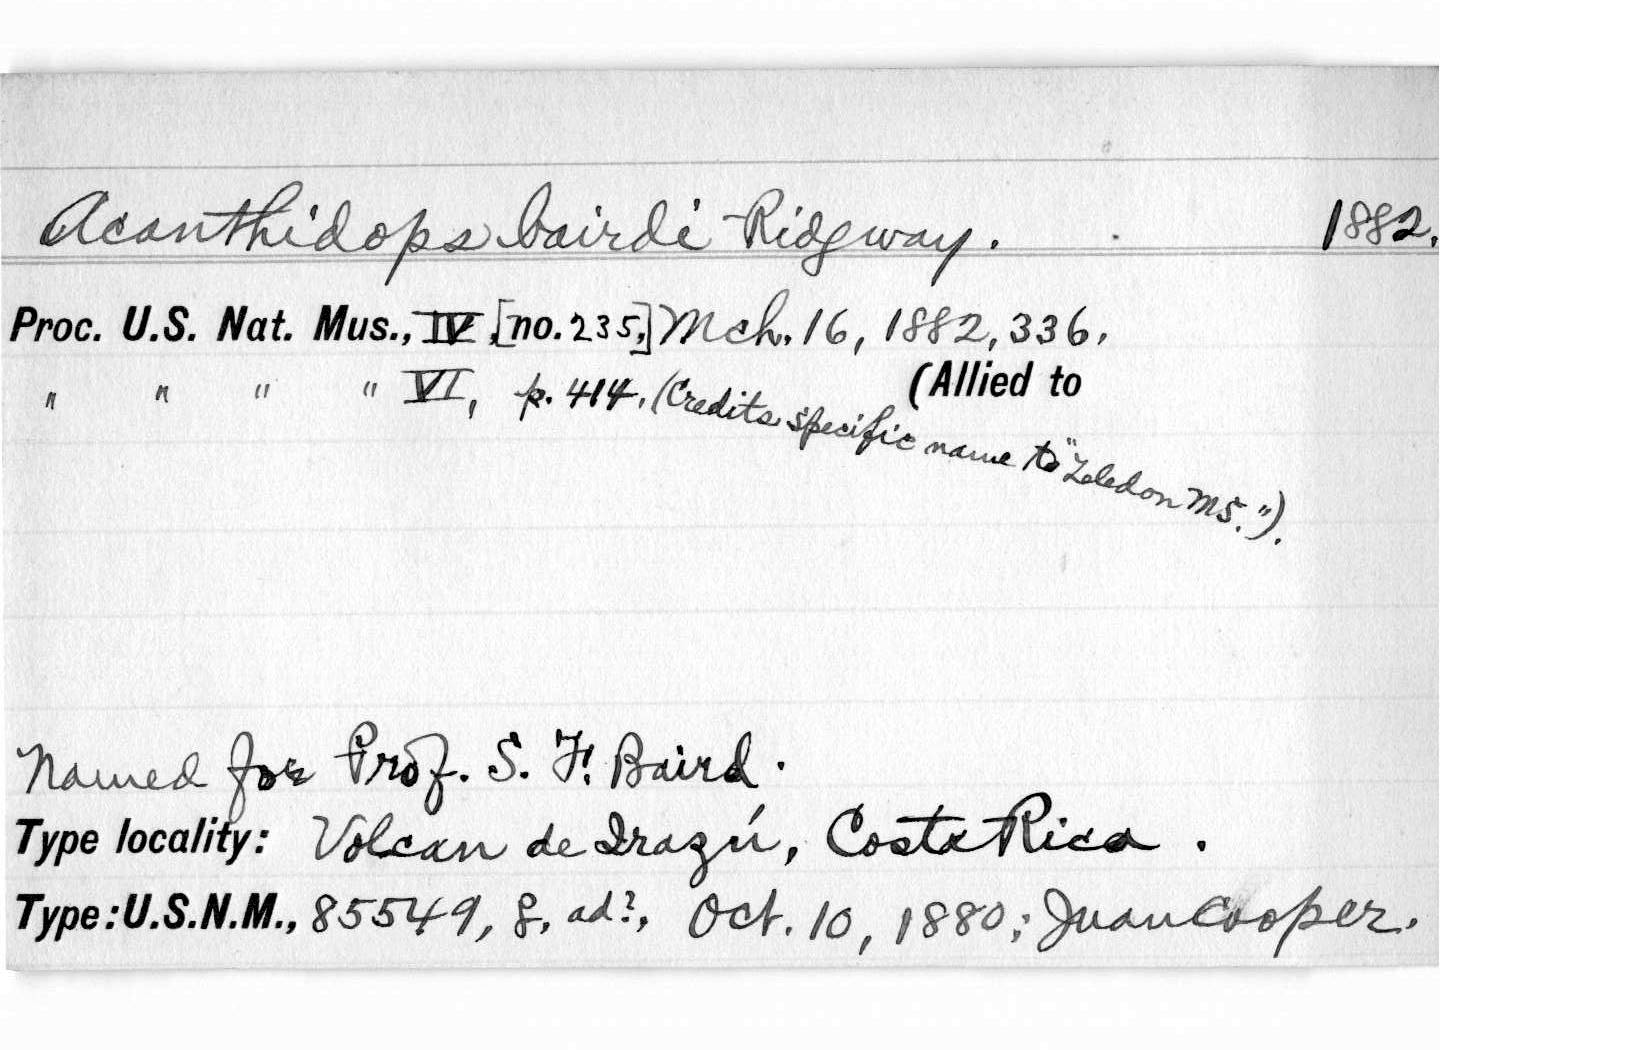 Acanthidops bairdi Ridgway. 1882.
Proc. U.S. Nat. Mus., IV, [no. 235,] Mch. 16, 1882, 336.
" " " " VI, p. 414. (Credits specific name to "Zeledon MS.").
(Allied to
Named for Prof. S. F. Baird.
Type locality: Volcan de Irazú, Costa Rica.
Type: U.S.N.M., 85549, ad?, Oct. 10, 1880; Juan Cooper.